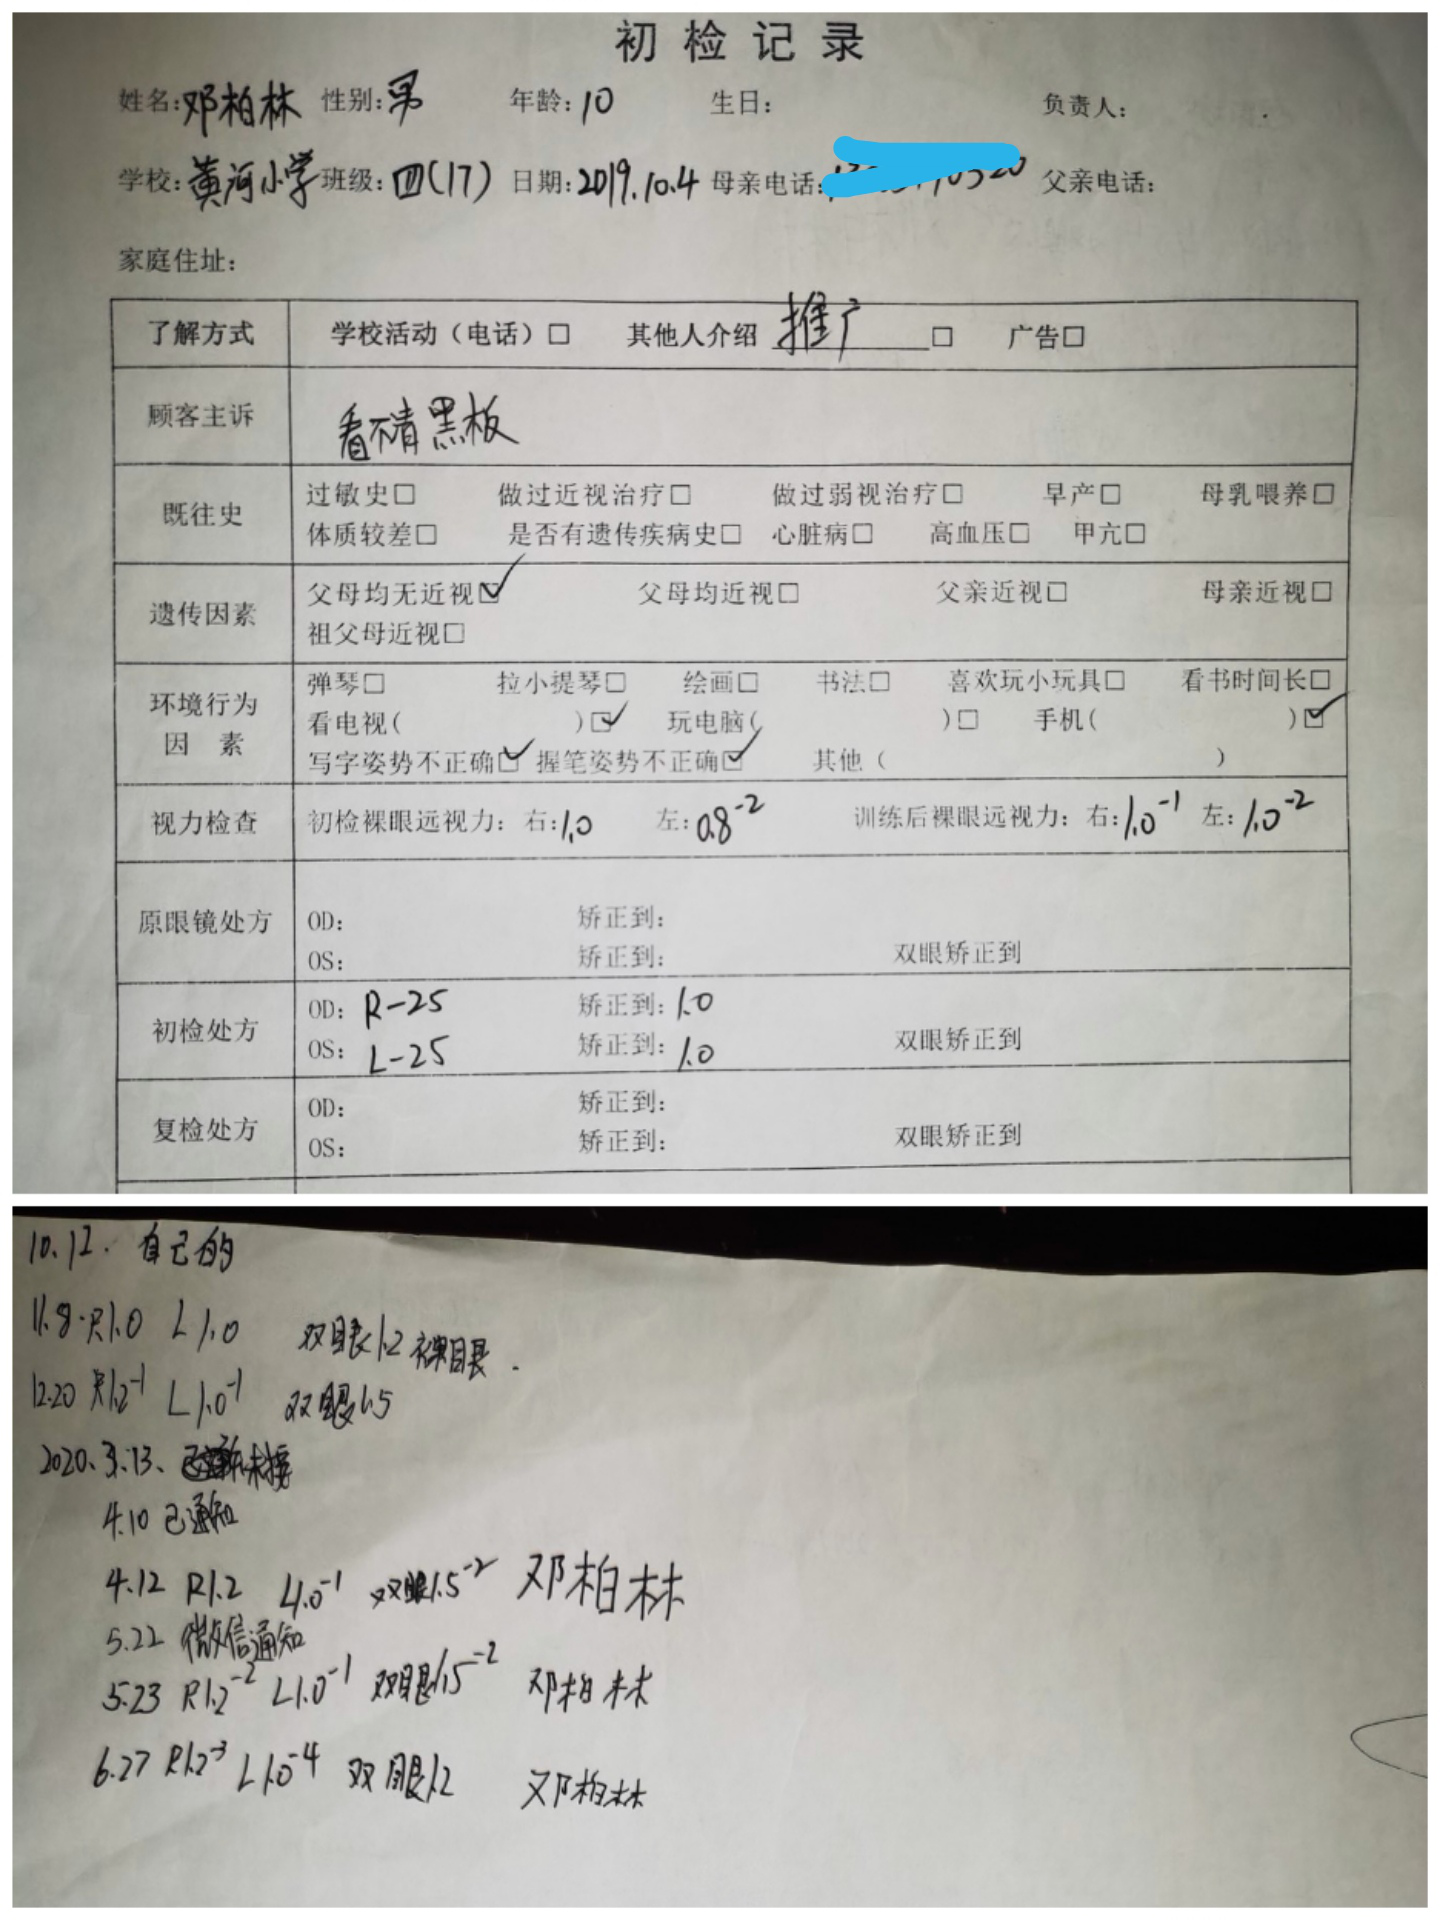 初检记录
姓名:邓柏林 性别:男 年龄:10 生日: 负责人:
学校:黄河小学 班级:四(17) 日期:2019.10.4 母亲电话: 父亲电话:
家庭住址:
了解方式 学校活动（电话）□ 其他人介绍 推广 □ 广告□
顾客主诉 看不清黑板
既往史 过敏史□ 做过近视治疗□ 做过弱视治疗□ 早产□ 母乳喂养□
体质较差□ 是否有遗传疾病史□ 心脏病□ 高血压□ 甲亢□
遗传因素 父母均无近视☑ 父母均近视□ 父亲近视□ 母亲近视□
祖父母近视□
环境行为因素 弹琴□ 拉小提琴□ 绘画□ 书法□ 喜欢玩小玩具□ 看书时间长□
看电视( )☑ 玩电脑( )□ 手机( )☑
写字姿势不正确☑ 握笔姿势不正确☑ 其他（ ）
视力检查 初检裸眼远视力: 右:1.0 左:0.8⁻² 训练后裸眼远视力: 右:1.0⁻¹ 左:1.0⁻²
原眼镜处方 OD: 矫正到:
OS: 矫正到: 双眼矫正到
初检处方 OD: R-25 矫正到: 1.0
OS: L-25 矫正到: 1.0 双眼矫正到
复检处方 OD: 矫正到:
OS: 矫正到: 双眼矫正到
10.12. 自己的
11.8. R1.0 L1.0 双眼1.2 裸眼.
12.20 R1.2⁻¹ L1.0⁻¹ 双眼1.5
2020.3.13. 未接
4.10 已通知
4.12 R1.2 L1.0⁻¹ 双眼1.5⁻² 邓柏林
5.22 微信通知
5.23 R1.2⁻² L1.0⁻¹ 双眼1.5⁻² 邓柏林
6.27 R1.2⁻³ L1.0⁻⁴ 双眼1.2 邓柏林